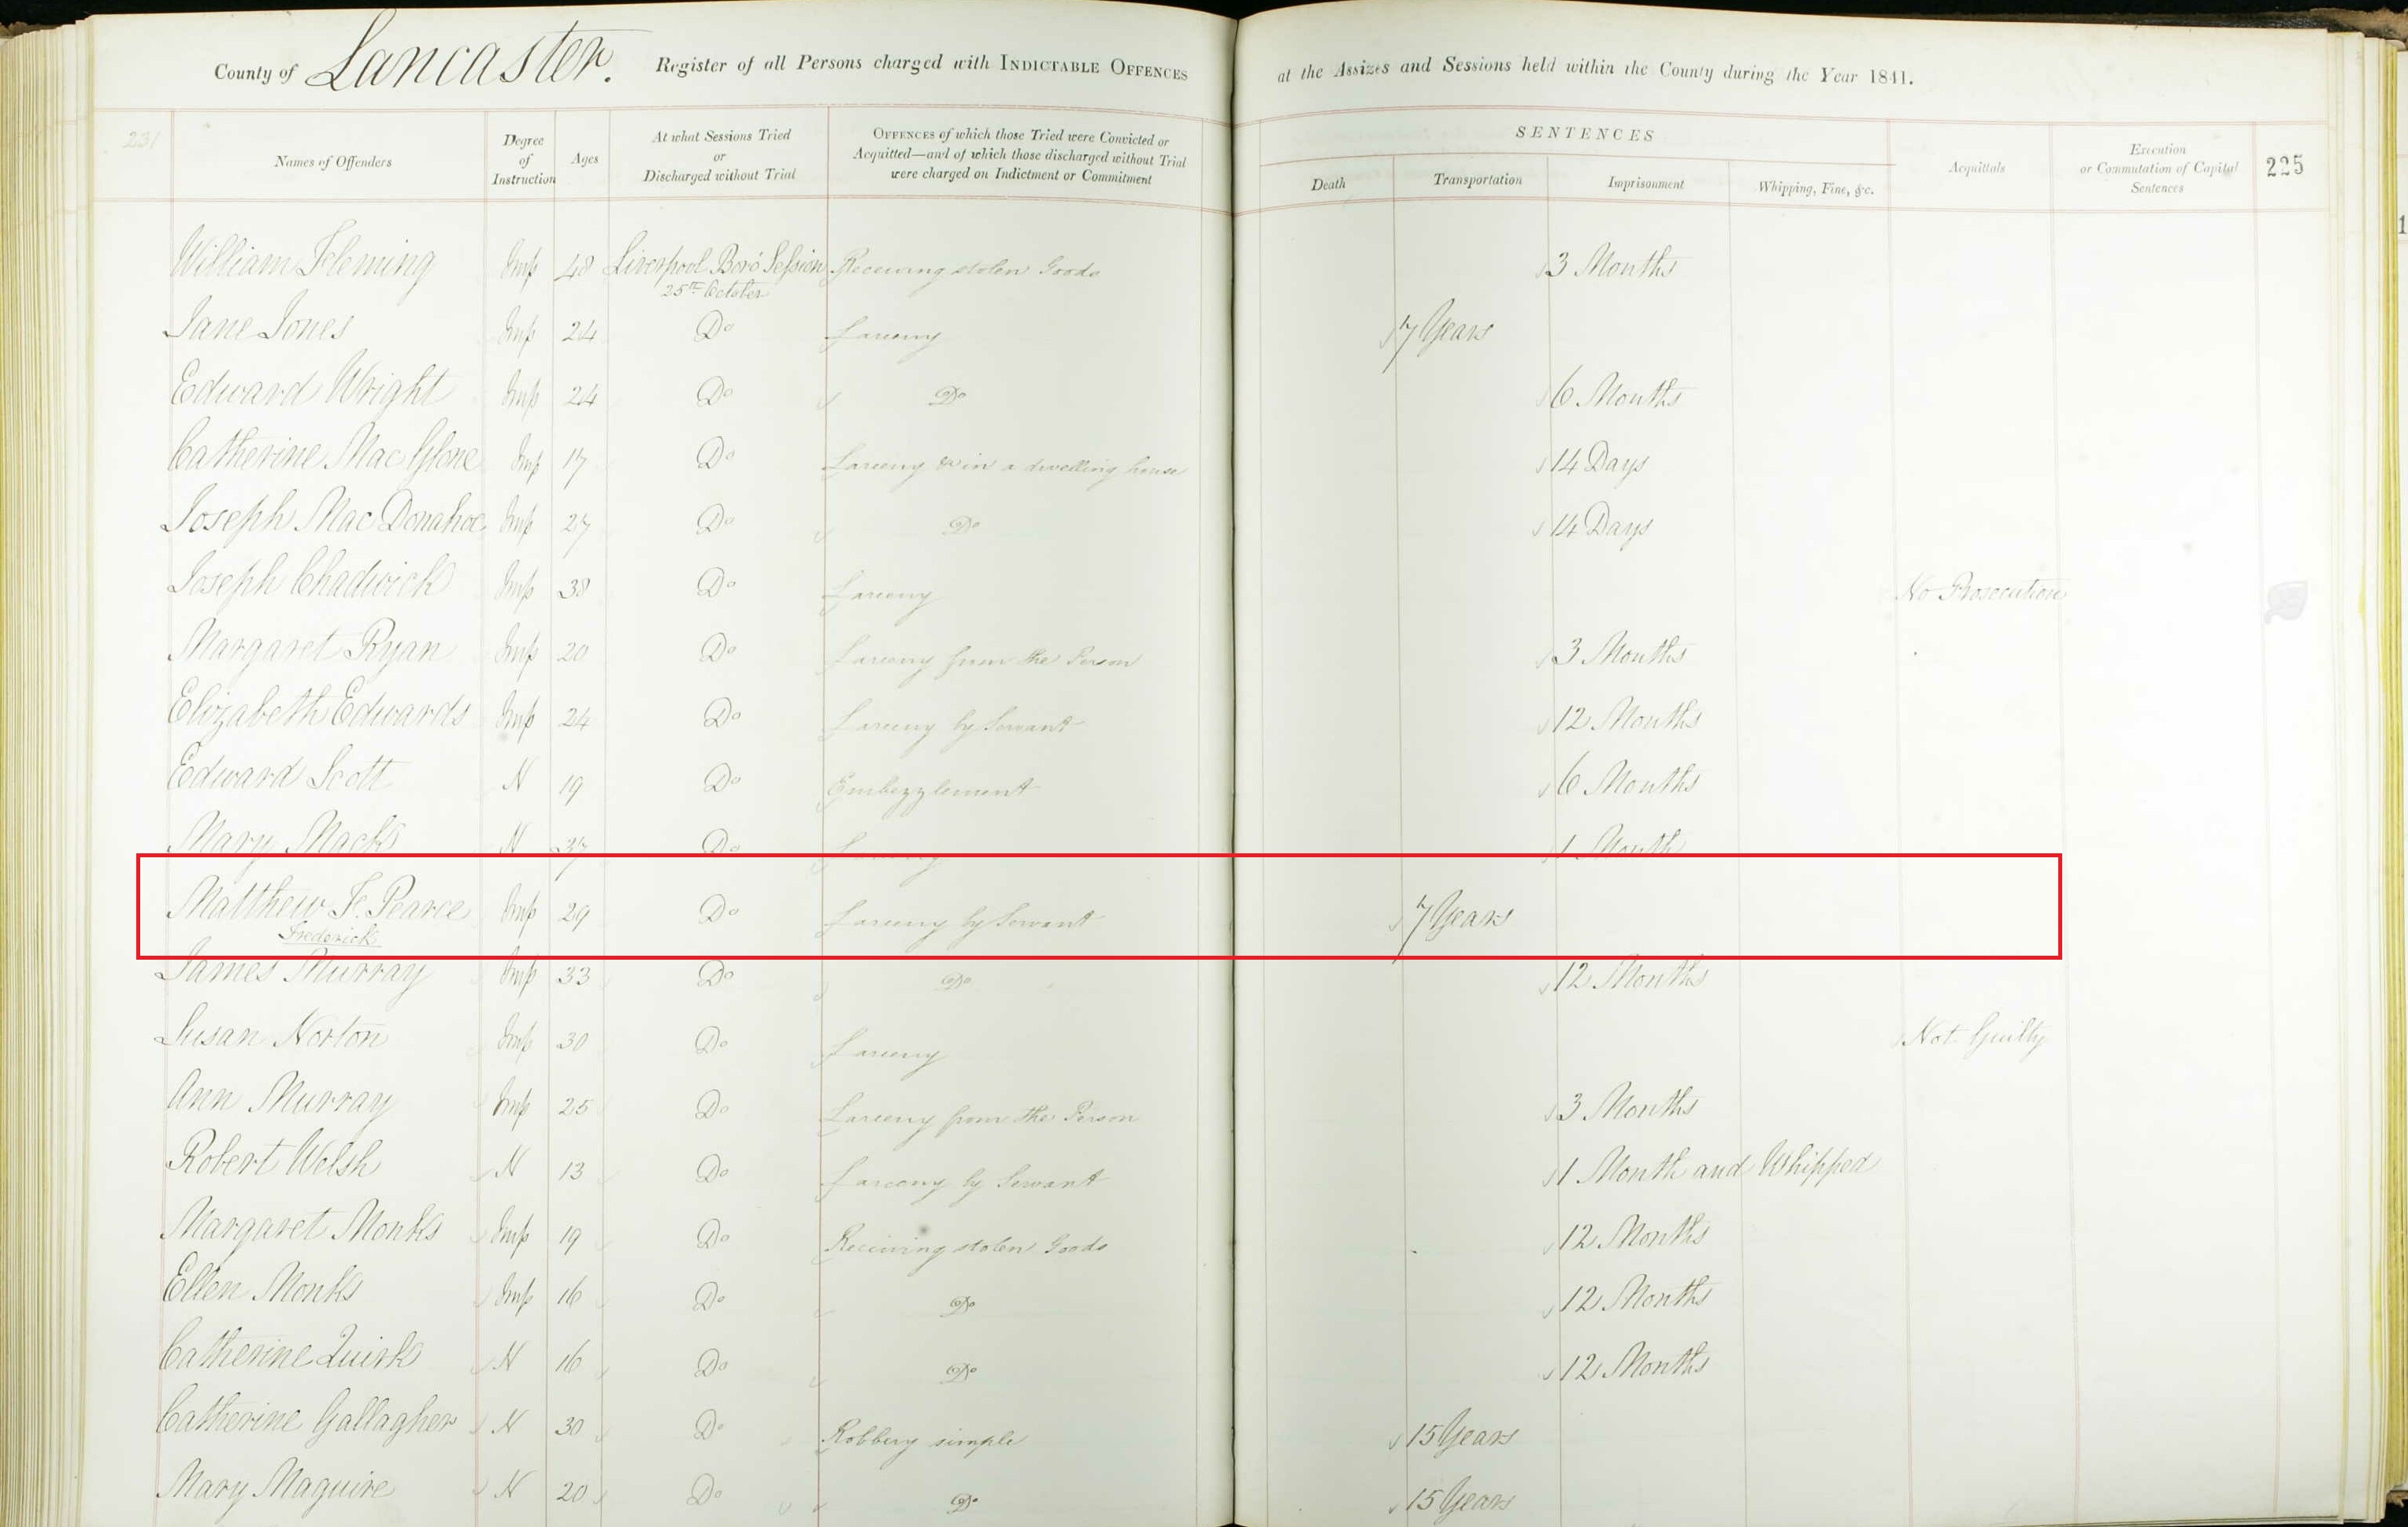 County of Lancaster. Register of all Persons charged with INDICTABLE OFFENCES at the Assizes and Sessions held within the County during the Year 1841.
231 Names of Offenders
Degree of Instruction
Ages
At what Sessions Tried or Discharged without Trial
OFFENCES of which those Tried were Convicted or Acquitted—and of which those discharged without Trial were charged on Indictment or Commitment
SENTENCES
Death Transportation Imprisonment Whipping, Fine, &c.
Acquittals
Execution or Commutation of Capital Sentences
225
William Fleming Imp 48 Liverpool Boro' Session Receiving stolen Goods 3 Months
25th October
Jane Jones Imp 24 Do Larceny 7 Years
Edward Wright Imp 24 Do Do 6 Months
Catherine Mac Glone Imp 17 Do Larceny &c in a dwelling house 14 Days
Joseph Mac Donahoe Imp 27 Do Do 14 Days
Joseph Chadwick Imp 38 Do Larceny No Prosecution
Margaret Ryan Imp 20 Do Larceny from the Person 3 Months
Elizabeth Edwards Imp 24 Do Larceny by Servant 12 Months
Edward Scott N 19 Do Embezzlement 6 Months
Mary Macks N 37 Do Larceny 1 Month
Matthew F. Pearce Imp 29 Do Larceny by Servant 7 Years
Frederick
James Murray Imp 33 Do Do 12 Months
Susan Norton Imp 30 Do Larceny Not Guilty
Ann Murray Imp 25 Do Larceny from the Person 3 Months
Robert Welsh N 13 Do Larceny by Servant 1 Month and Whipped
Margaret Monks Imp 19 Do Receiving stolen Goods 12 Months
Ellen Monks Imp 16 Do Do 12 Months
Catherine Quirk N 16 Do Do 12 Months
Catherine Gallagher N 30 Do Robbery simple 15 Years
Mary Maguire N 20 Do Do 15 Years